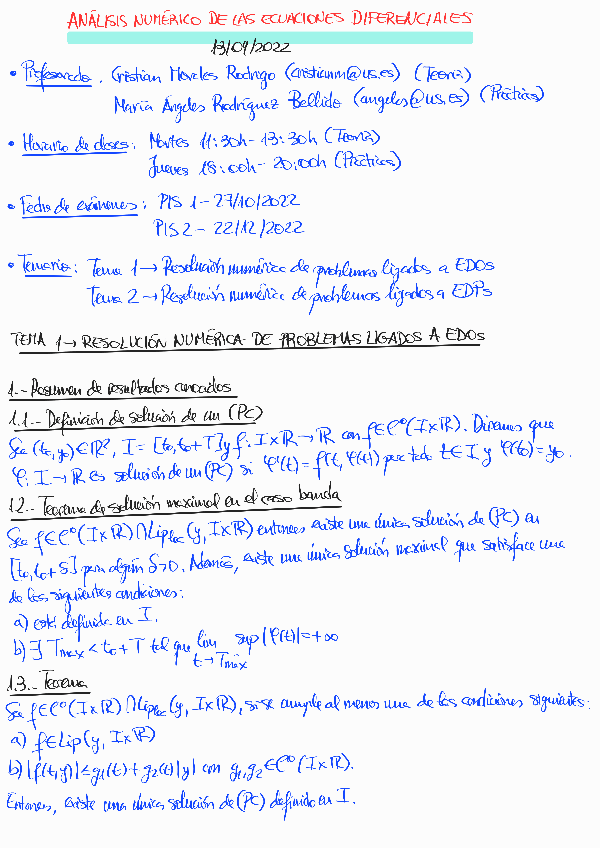 ANÁLISIS NUMÉRICO DE LAS ECUACIONES DIFERENCIALES
13/09/2022
• Profesorado: Cristian Morales Rodrigo (cristianm@us.es) (Teoría)
María Ángeles Rodríguez Bellido (angeles@us.es) (Prácticas)
• Horario de clases: Martes 11:30h - 13:30h (Teoría)
Jueves 18:00h - 20:00h (Prácticas)
• Fecha de exámenes: PIS 1 - 27/10/2022
PIS 2 - 22/12/2022
• Temario: Tema 1 → Resolución numérica de problemas ligados a EDOs
Tema 2 → Resolución numérica de problemas ligados a EDPs
TEMA 1 → RESOLUCIÓN NUMÉRICA DE PROBLEMAS LIGADOS A EDOs
1.- Resumen de resultados conocidos
1.1.- Definición de solución de un (PC)
Sea (t₀,y₀)∈ℝ², I = [t₀,t₀+T] y f: I×ℝ → ℝ con f∈C⁰(I×ℝ). Diremos que
φ: I → ℝ es solución de un (PC) si φ'(t) = f(t, φ(t)) para todo t∈I y φ(t₀) = y₀.
1.2.- Teorema de solución maximal en el caso banda
Sea f∈C⁰(I×ℝ)∩Lip_loc(y, I×ℝ) entonces existe una única solución de (PC) en
[t₀,t₀+δ] para algún δ>0. Además, existe una única solución maximal que satisface una
de las siguientes condiciones:
a) está definida en I.
b) ∃ Tmax < t₀+T tal que lim sup |φ(t)| = +∞
t→Tmax
1.3.- Teorema
Sea f∈C⁰(I×ℝ)∩Lip_loc(y, I×ℝ), si se cumple al menos una de las condiciones siguientes:
a) f∈Lip(y, I×ℝ)
b) |f(t,y)| ≤ g₁(t) + g₂(t)|y| con g₁,g₂∈C⁰(I×ℝ).
Entonces, existe una única solución de (PC) definida en I.